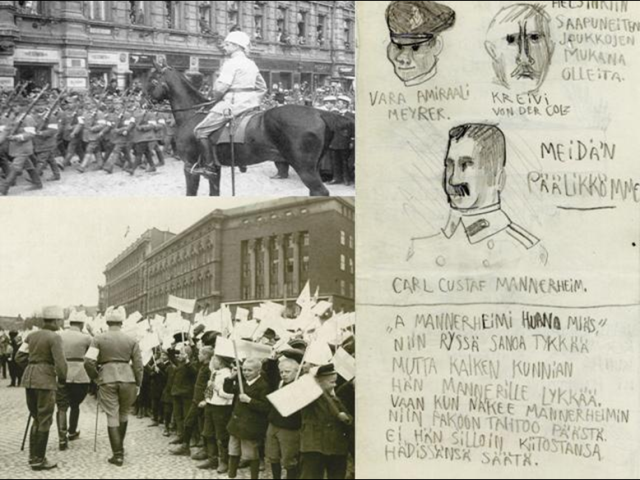 HELSINKIIN
SAAPUNEITEN
JOUKKOJEN
MUKANA
OLLEITA.
VARA AMIRAALI
MEYRER.
KREIVI
VON DER GOLZ
MEIDÄN
PÄÄLIKKÖMME
CARL CUSTAF MANNERHEIM.
„A MANNERHEIMI HUANO MIÄS,"
NIIN RYSSÄ SANOA TYKKÄÄ
MUTTA KAIKEN KUNNIAN
HÄN MANNERILLE LYKKÄÄ.
VAAN KUN NÄKEE MANNERHEIMIN
NIIN PAKOON TAHTOO PÄÄSTÄ
EI HÄN SILLOIN KIITOSTANSA
HÄDISSÄNSÄ SÄÄTÄ.